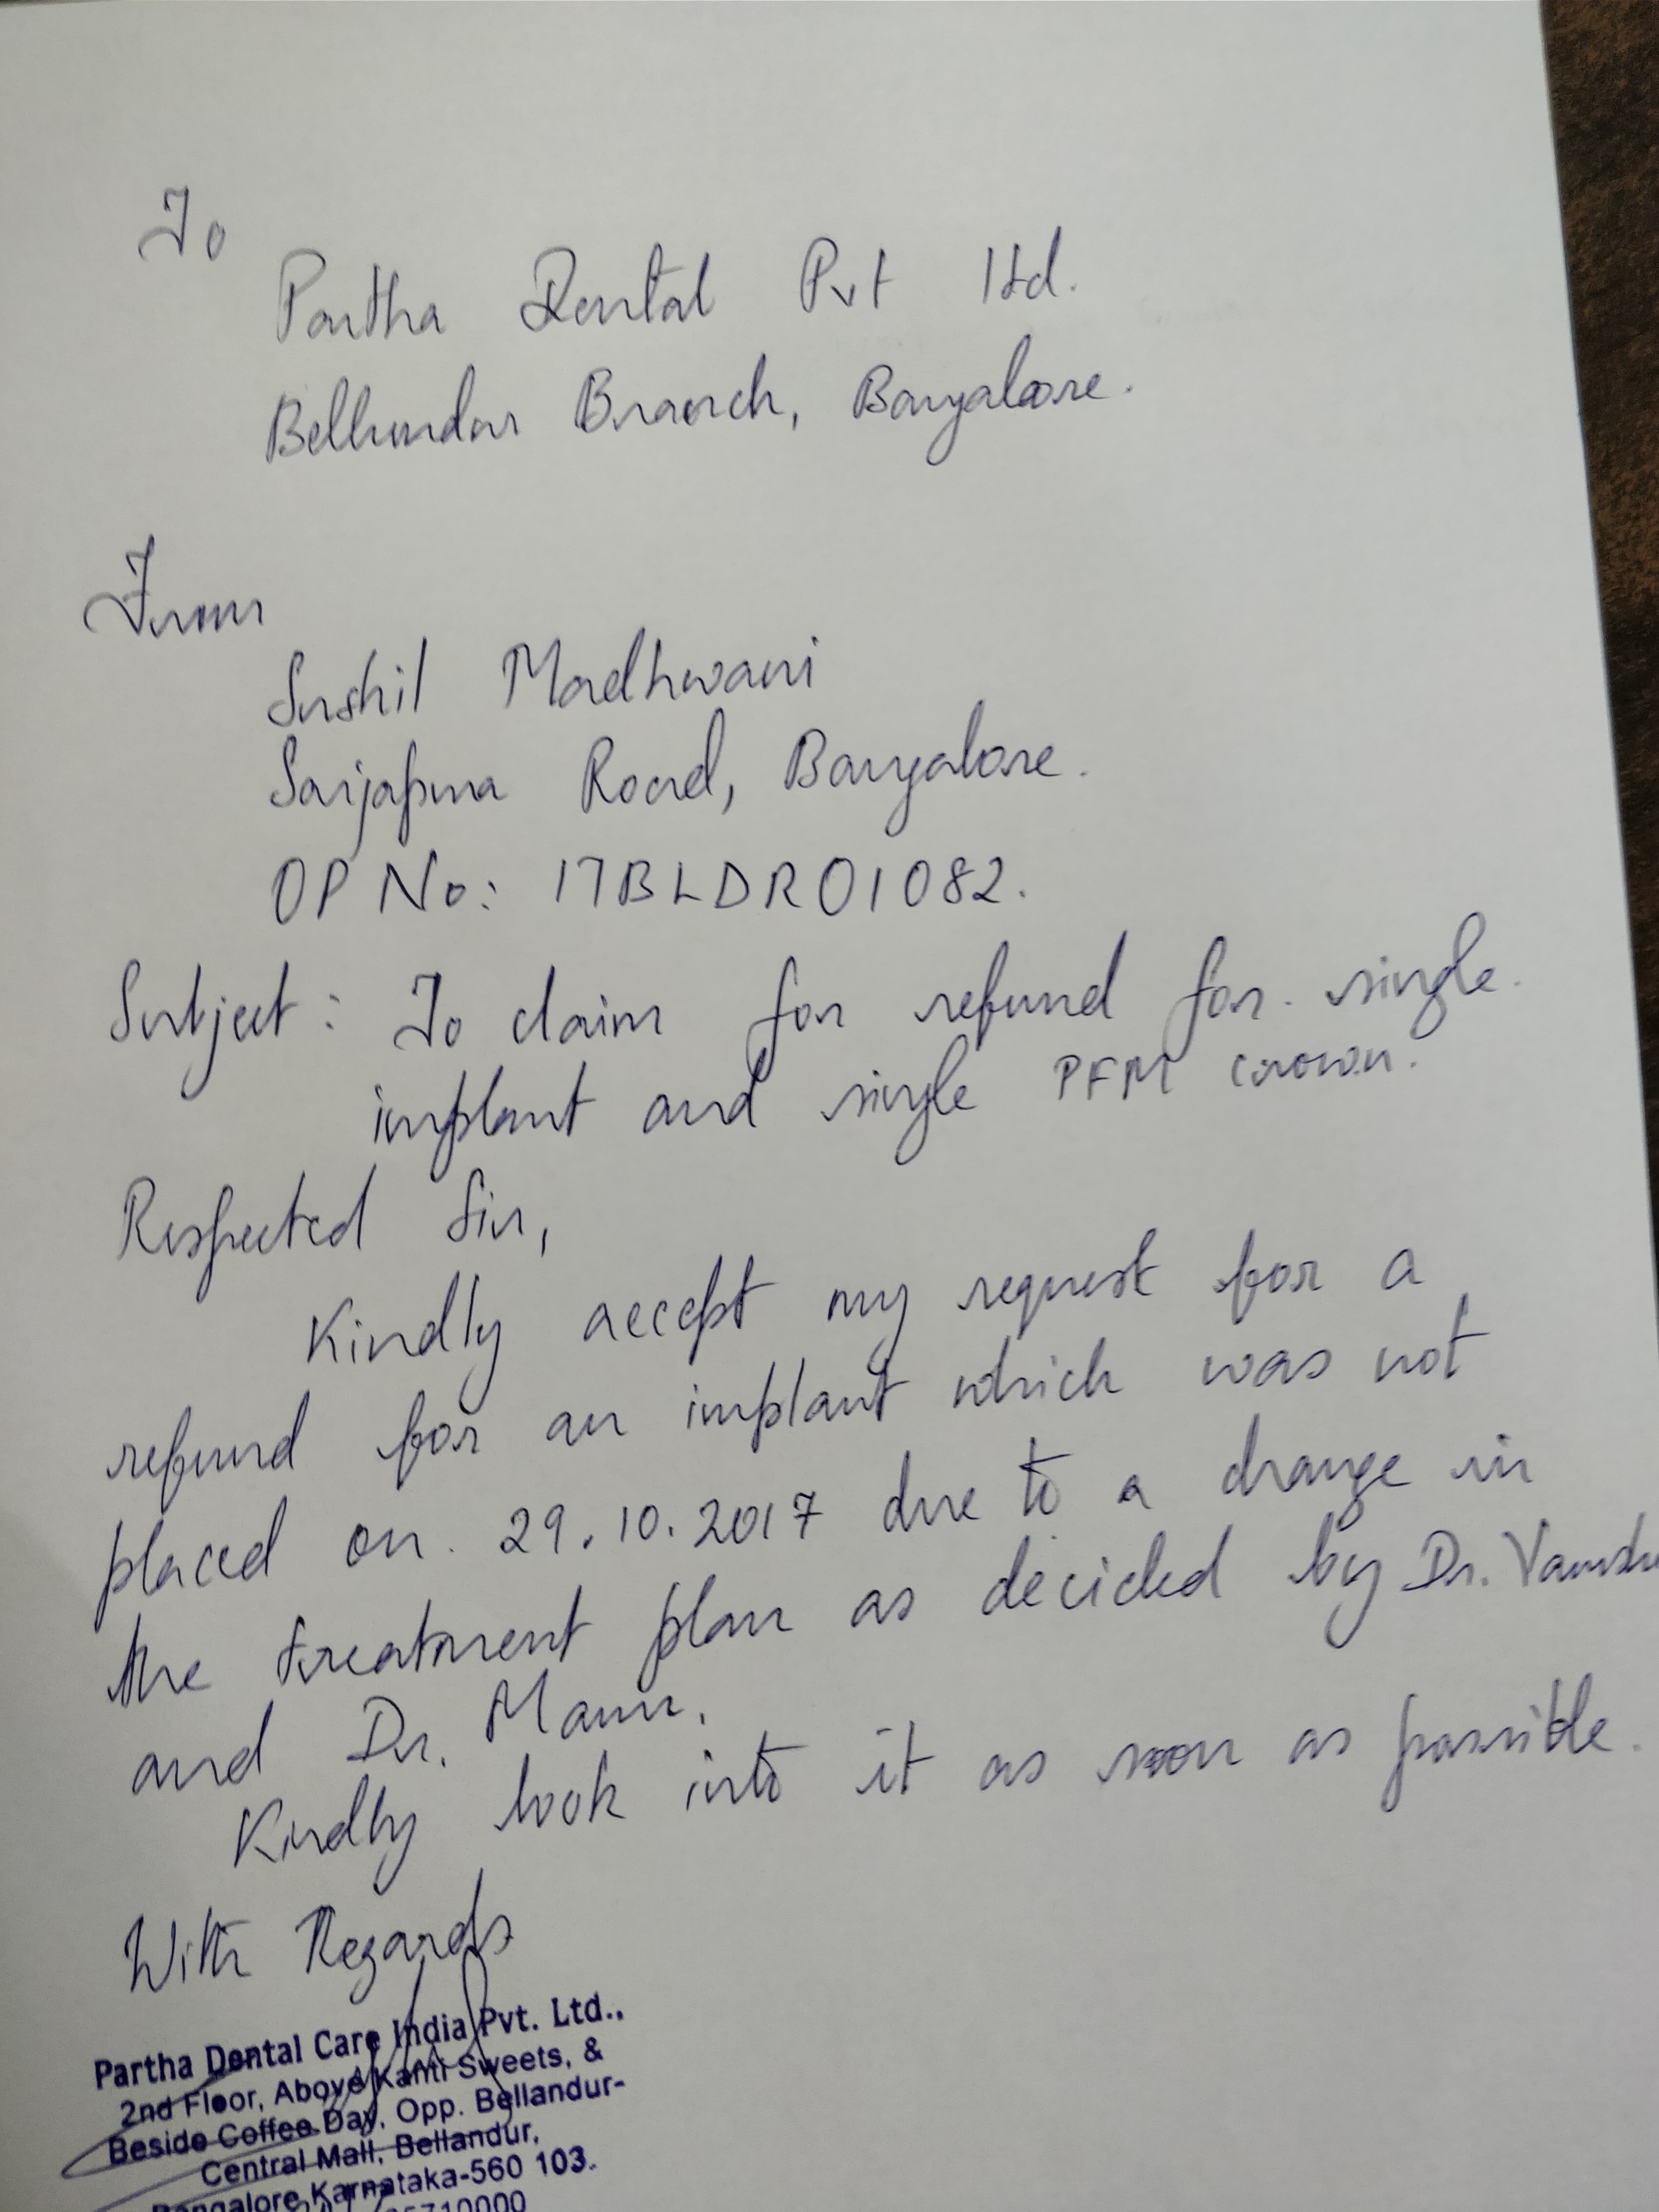 To
Partha Dental Pvt ltd.
Bellundur Branch, Bangalore.
From
Sushil Madhwani
Sarjapura Road, Bangalore.
OP No: 17BLDR01082.
Subject: To claim for refund for single
implant and single PFM crown.
Respected Sir,
Kindly accept my request for a
refund for an implant which was not
placed on. 29.10.2017 due to a change in
the treatment plan as decided by Dr.
and Dr.
Kindly look into it as soon as possible.
With Regards
Partha Dental Care India Pvt. Ltd.,
2nd Floor, Above Kanti Sweets, &
Beside Coffee Day, Opp. Bellandur-
Central Mall, Bellandur,
Bangalore Karnataka-560 103.